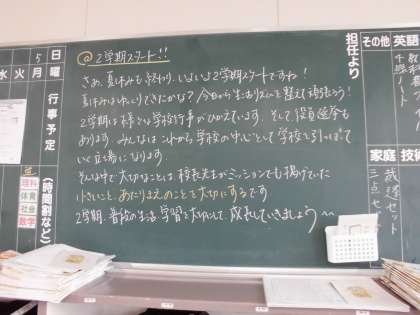 担任より
◎2学期スタート!!
さぁ、夏休みも終わり、いよいよ2学期スタートですね!
夏休みはゆっくりできたかな?今日から生活リズムを整えて頑張ろう!
2学期は様々な学校行事がひかえています。そして役員選挙も
あります。みんなはこれから学校の中心として学校を引っぱって
いく立場になります。
そんな中で大切なことは校長先生がミッションでも掲げていた
小さいこと、あたりまえのことを大切にするです
2学期、普段の生活、学習を大切にして、成長していきましょう
その他
英語
家庭
技術
日
5
月
火
水
曜
行事予定
(時間割など)
理科
体育
社会
数学